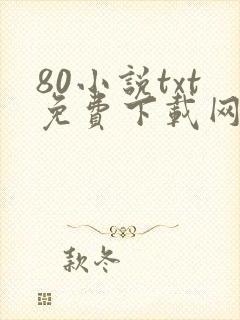 80小説txt
免費下載网
款冬